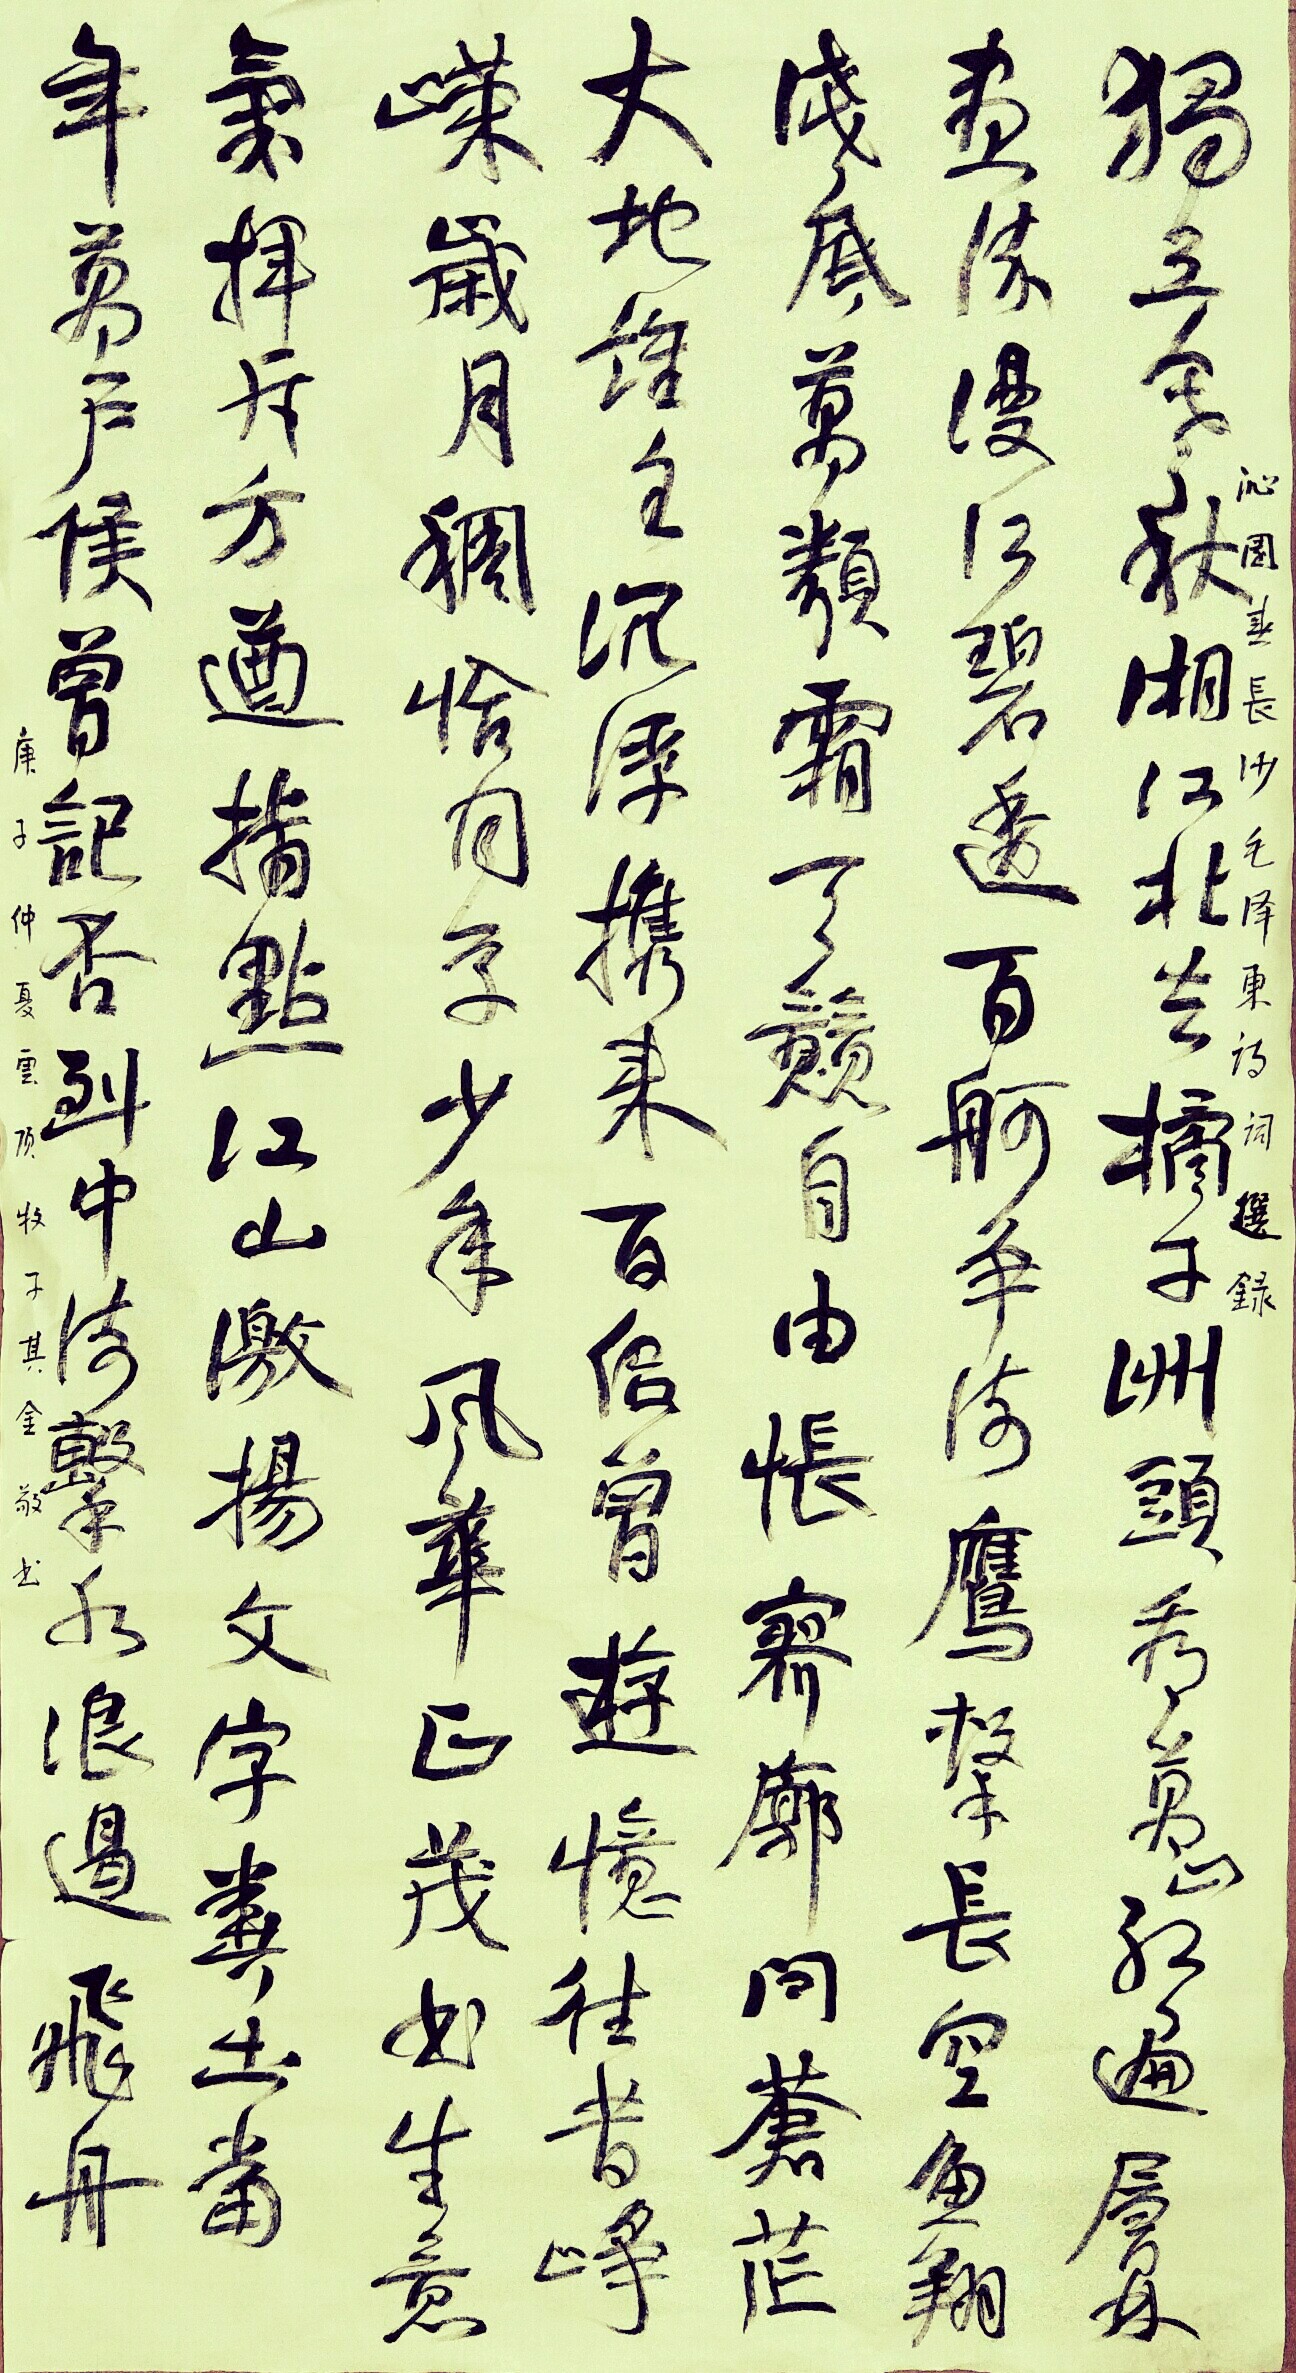 沁園春長沙毛泽東詩詞選録
獨立寒秋湘江北去橘子洲頭看萬山紅遍層林
盡染漫江碧透百舸爭流鷹擊長空魚翔
淺底萬類霜天競自由悵寥廓問蒼茫
大地誰主沉浮携来百侣曾遊憶往昔崢
嶸歲月稠恰同学少年风華正茂书生意
氣揮斥方遒指點江山激揚文字糞土當
年萬户侯曾記否到中流擊水浪遏飛舟
庚子仲夏雲顶牧子其金敬书